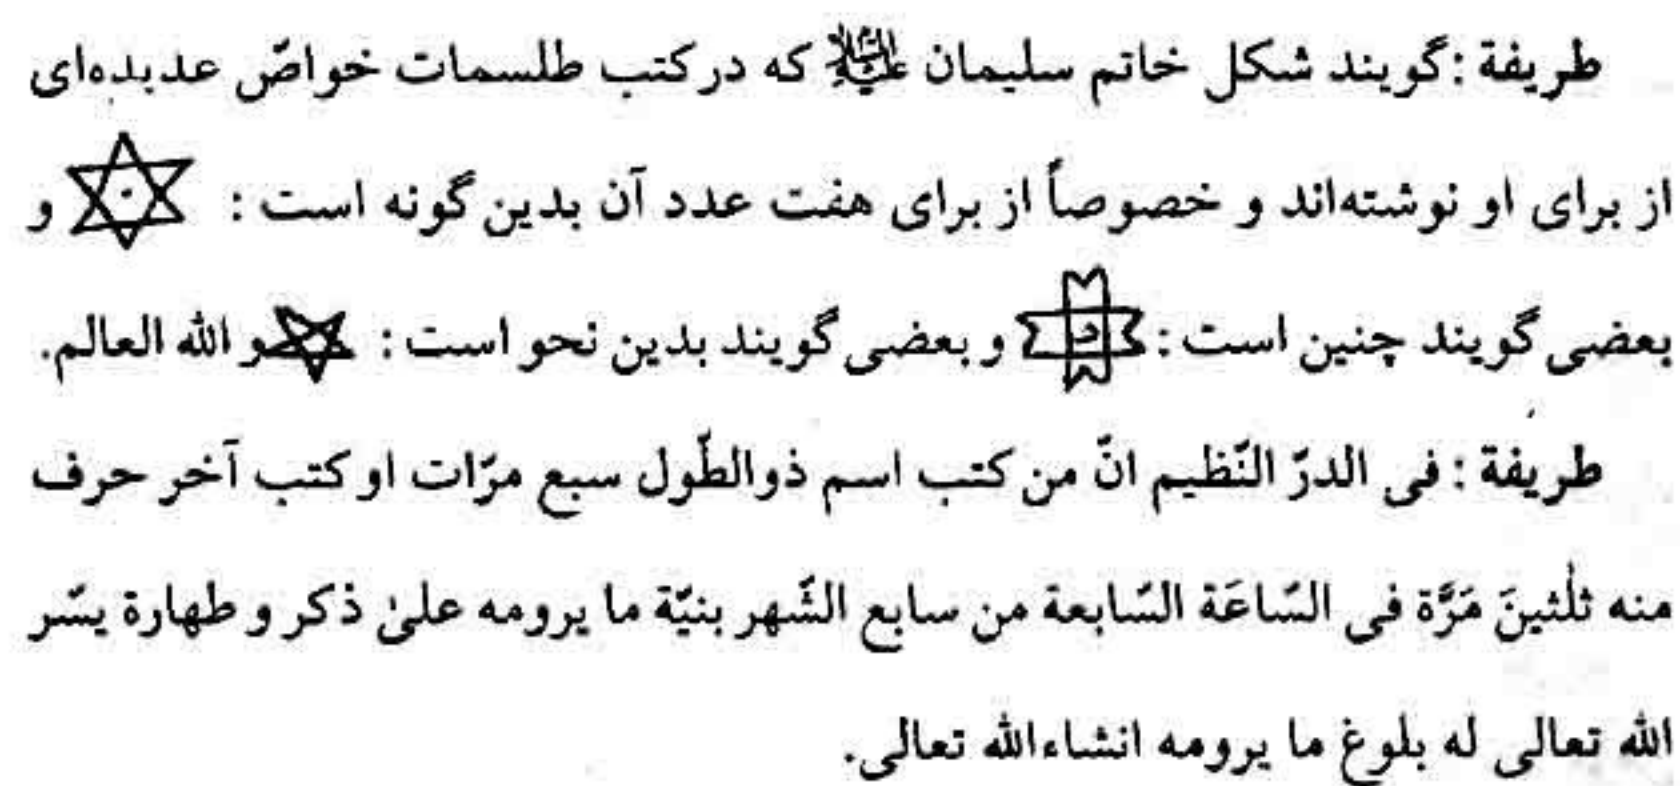 طریفة : گویند شکل خاتم سلیمان علیه السلام که در کتب طلسمات خواصّ عدیده‌ای
از برای او نوشته‌اند و خصوصاً از برای هفت عدد آن بدین گونه است : و
بعضی گویند چنین است : د و بعضی گویند بدین نحو است : و الله العالم.
طریفة : فی الدرّ النّظیم انّ من کتب اسم ذوالطّول سبع مرّات او کتب آخر حرف
منه ثلٰثینَ مَرَّة فی السّاعَة السّابعة من سابع الشّهر بنیّة ما یرومه علیٰ ذکر و طهارة یسّر
الله تعالی له بلوغ ما یرومه انشاءالله تعالی.